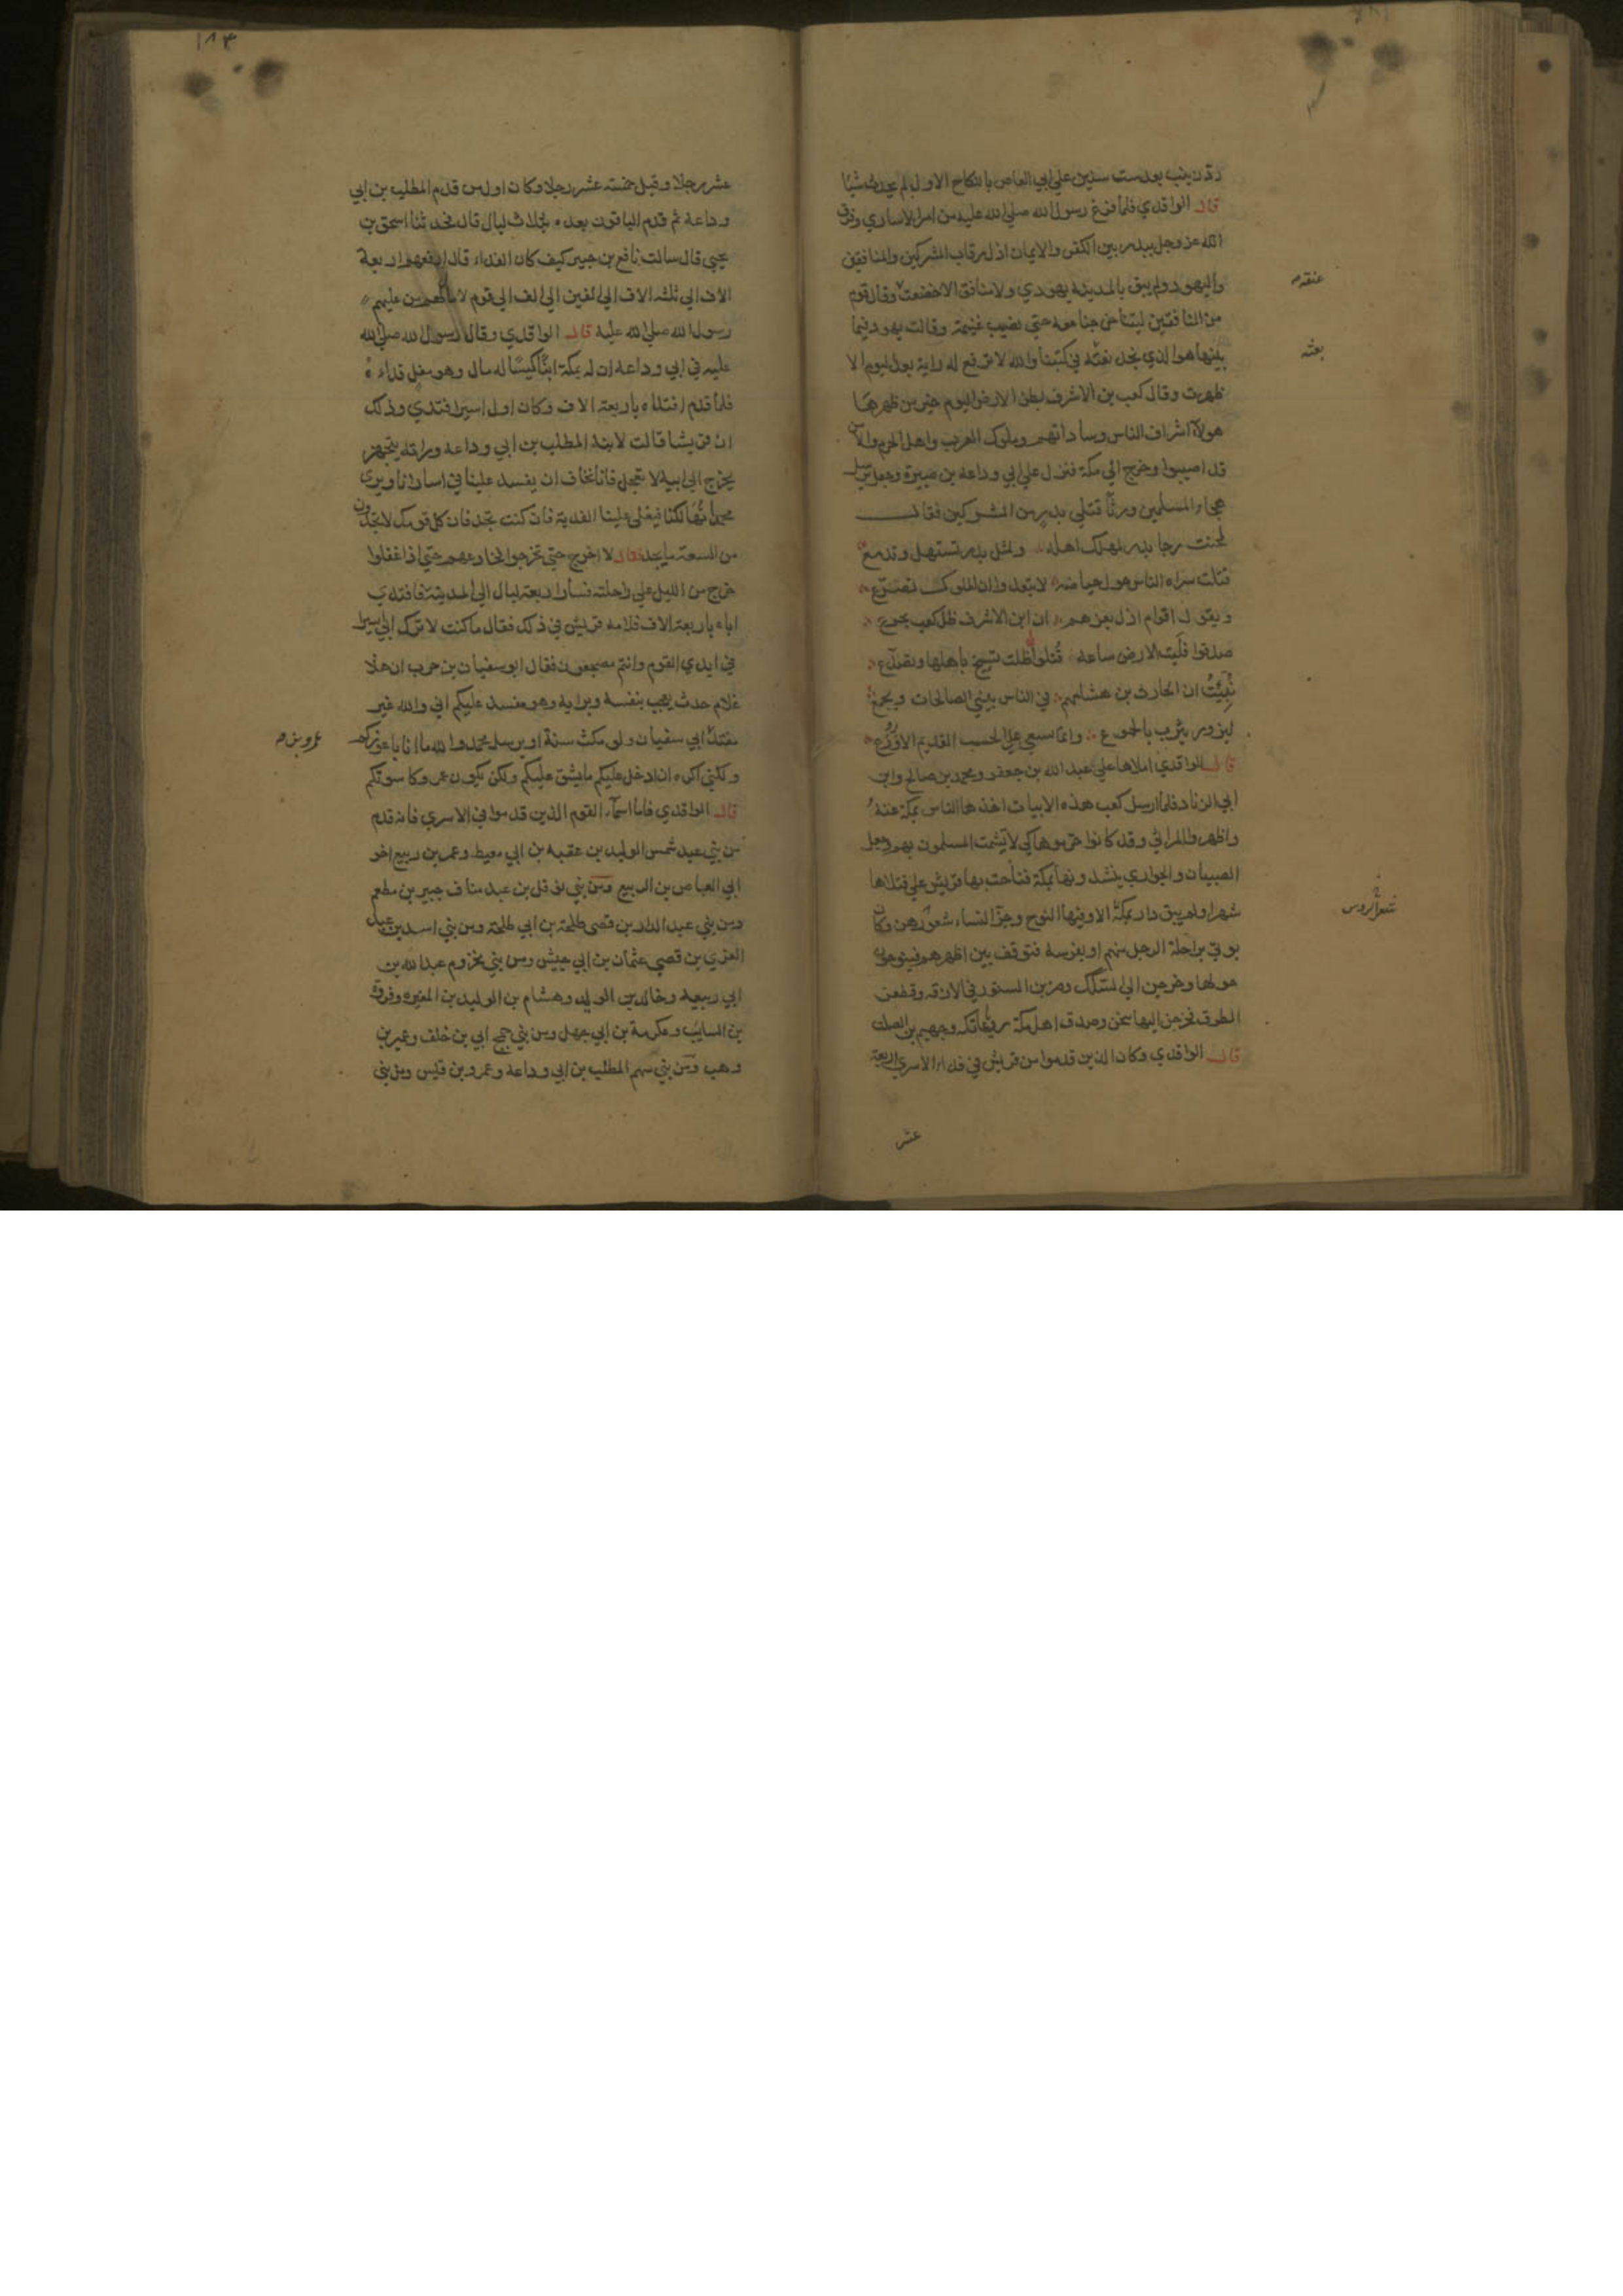 ردّ زينب بعد ست سنين علي ابي العاص بالنكاح الاول لم يحدث شيئا
قال الواقدي فلما فرغ رسول الله صلي الله عليه من امر الاساري وفرق
الله عز وجل ببدر بين الكفر والايمان اذل رقاب المشركين والمنافقين
واليهود ولم يبق بالمدينة يهودي ولا منافق الا خضعت وقال قوم
عنقه
من المنافقين ليتنا خرجنا معه حتي نصيب غنيمة وقالت يهود فيما
بينها هو الذي نجد نعته في كتبنا والله لا ترفع له راية بعد اليوم الا
ظهرت وقال كعب بن الاشرف بطن الارض اليوم خير من ظهرها
هولاء اشراف الناس وساداتهم وملوك العرب واهل الحرم والامن
قد اصيبوا وخرج الي مكة فنزل علي ابي وداعة بن صبيرة وجعل يرسل
هجاء المسلمين ورثا قتلي بدر من المشركين فقال
طحنت رحا بدر لمهلك اهله ولمثل بدر تستهل وتدمع
قتلت سراه الناس حول حياضه لا تبعدوا ان الملوك تصرع
ويقول اقوام اذل بعزهم ان ابن الاشرف ظل كعب يجزع
صدقوا فليت الارض ساعة قتلوا ظلت تسيخ باهلها وتصدع
نبئت ان الحارث بن هشامهم في الناس يبني الصالحات ويجمع
ليزور يثرب بالجموع وانما يسعي علي الحسب القديم الاروع
قال الواقدي املاها علي عبد الله بن جعفر ومحمد بن صالح وابن
ابي الزناد فلما ارسل كعب هذه الابيات اخذها الناس بمكة عنه
واظهروا المراثي وقد كانوا حرموها كي لا يشمت المسلمون بهم وجعل
الصبيان والجواري ينشدونها بمكة فناحت بها قريش علي قتلاها
شهرا ولم يبق دار بمكة الا وفيها النوح وجز النساء شعورهن وكان
شعر الروس
يوتي براحلة الرجل منهم او بفرسه فتوقف بين اظهرهم فينوحون
حولها وخرجن الي السكك وضربن الستور في الازقة وقطعن
الطرق فخرجن اليها ينحن وصدق اهل مكة رويا عاتكة وجهيم بن الصلت
قال الواقدي وكان الذين قدموا من قريش في فداء الاسري اربعة
عشر
١٨٣
عشر رجلا وقيل خمسة عشر رجلا وكان اول من قدم المطلب بن ابي
وداعة ثم قدم الباقون بعده بثلاث ليال قال فحدثنا اسحق بن
يحيي قال سالت نافع بن جبير كيف كان الفداء قال ارفعهم اربعة
الاف الي ثلثه الاف الي الفين الي الف الي قوم لا مال لهم من عليهم
رسول الله صلي الله عليه قال الواقدي وقال رسول الله صلي الله
عليه في ابي وداعة ان له بمكة ابنا كيسا له مال وهو مغل فداءه
فلما قدم افتداه باربعة الاف وكان اول اسير افتدي وذلك
ان قريشا قالت لابنه المطلب بن ابي وداعة وراته يتجهز
يخرج الي ابيه لا تعجل فانا نخاف ان يفسد علينا في اسارانا ويري
محمد تهالكنا فيغلي علينا الفدية فان كنت تجد فان كل قومك لا يجدون
من السعة ما تجد فقال لا اخرج حتي تخرجوا فخادعهم حتي اذا غفلوا
خرج من الليل علي راحلته فسار اربعة ليال الي المدينة فافتدي
اباه باربعة الاف فلامه قريش في ذلك فقال ما كنت لاترك ابي اسيرا
في ايدي القوم وانتم مضجعون فقال ابو سفيان بن حرب ان هذا
غلام حدث يعجب بنفسه وبرايه وهو مفسد عليكم اني والله غير
مفتد ابي سفيان ولو مكث سنة او يرسله محمد والله ما انا باعوزكم
عمرو بن
ولكني اكره ان ادخل عليكم ما يشق عليكم ولكن يكون عمرو كاسوتكم
قال الواقدي فاما اسماء القوم الذين قدموا في الاسري فانه قدم
من بني عبد شمس الوليد بن عقبه بن ابي معيط وعمر بن ربيع اخو
ابي العاص بن الربيع ومن بني نوفل بن عبد مناف جبير بن مطعم
ومن بني عبد الدار بن قصي طلحة بن ابي طلحة ومن بني اسد بن عبد
العزي بن قصي عثمان بن ابي حبيش ومن بني مخزوم عبد الله بن
ابي ربيعة وخالد بن الوليد وهشام بن الوليد بن المغيره وفروة
بن السايب وعكرمة بن ابي جهل ومن بني جمح ابي بن خلف وعمير بن
وهب ومن بني سهم المطلب بن ابي وداعة وعمرو بن قيس ومن بني